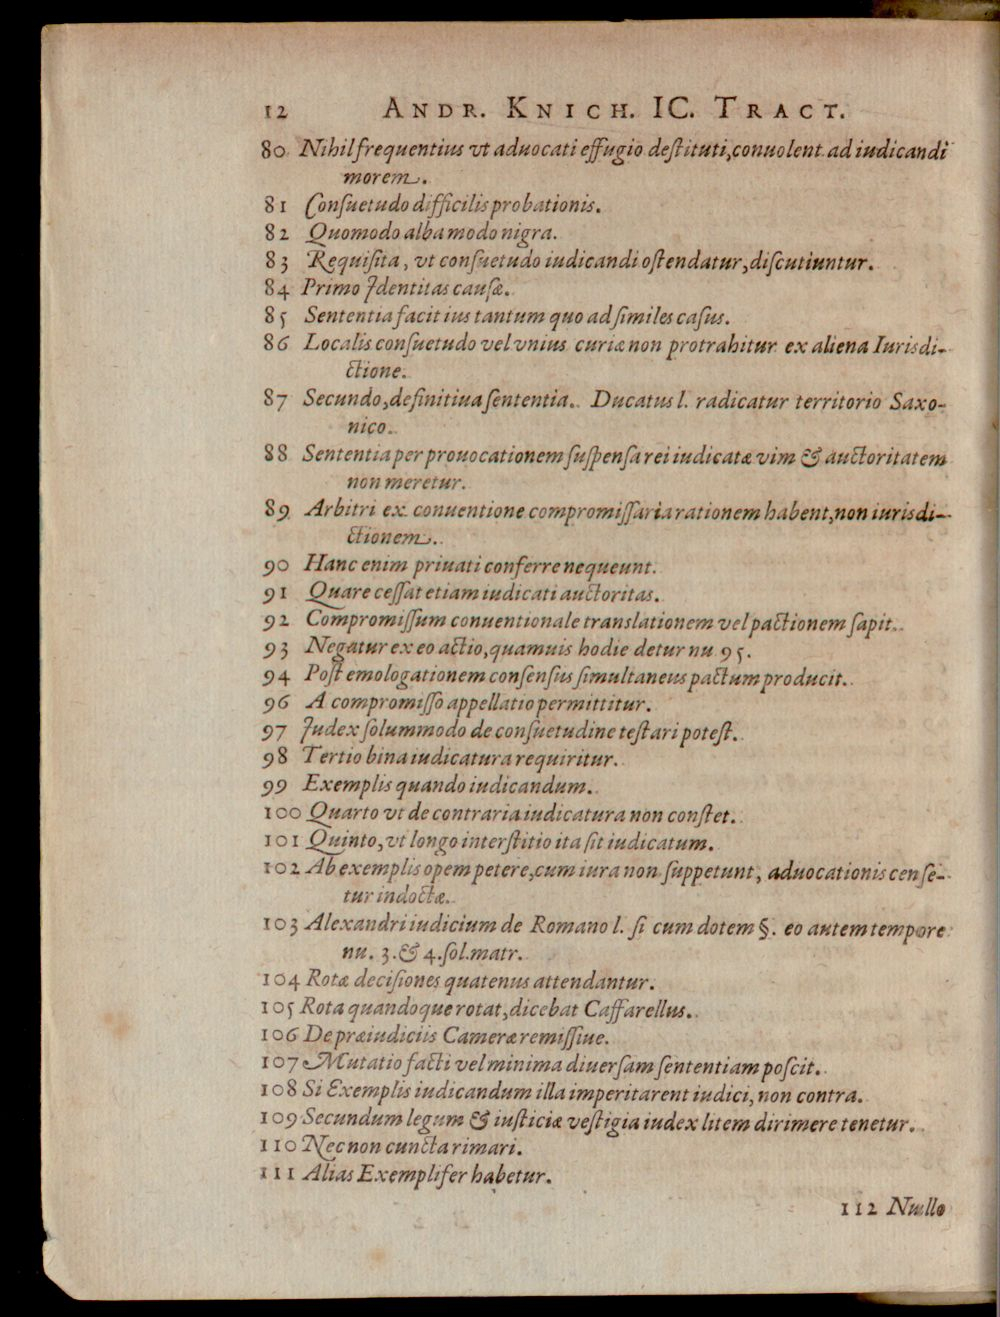 12 ANDR. KNICH. IC. TRACT.
80 Nihil frequentius vt aduocati effugio deſtituti, conuolent ad iudicandi
morem.
81 Conſuetudo difficilis probationis.
82 Quomodo alba modo nigra.
83 Requiſita, vt conſuetudo iudicandi oſtendatur, diſcutiuntur.
84 Primo Identitas cauſæ.
85 Sententia facit ius tantum quo ad ſimiles caſus.
86 Localis conſuetudo vel vnius curiæ non protrahitur ex aliena Iurisdi-
ctione.
87 Secundo, definitiua ſententia. Ducatus l. radicatur territorio Saxo-
nico.
88 Sententia per prouocationem ſuſpenſa rei iudicatæ vim & auctoritatem
non meretur.
89 Arbitri ex conuentione compromiſſaria rationem habent, non iurisdi-
ctionem.
90 Hanc enim priuati conferre nequeunt.
91 Quare ceſſat etiam iudicati auctoritas.
92 Compromiſſum conuentionale translationem vel pactionem ſapit.
93 Negatur ex eo actio, quamuis hodie detur nu 95.
94 Poſt emologationem conſenſus ſimultaneus pactum producit.
96 A compromiſſo appellatio permittitur.
97 Iudex ſolummodo de conſuetudine teſtari poteſt.
98 Tertio bina iudicatura requiritur.
99 Exemplis quando iudicandum.
100 Quarto vt de contraria iudicatura non conſtet.
101 Quinto, vt longo interſtitio ita ſit iudicatum.
102 Ab exemplis opem petere, cum iura non ſuppetunt, aduocationis cenſe-
tur indoctæ.
103 Alexandri iudicium de Romano l. ſi cum dotem §. eo autem tempore
nu. 3. & 4. ſol. matr.
104 Rotæ deciſiones quatenus attendantur.
105 Rota quandoque rotat, dicebat Caffarellus.
106 De præiudiciis Cameræ remiſſiue.
107 Mutatio facti vel minima diuerſam ſententiam poſcit.
108 Si Exemplis iudicandum illa imperitarent iudici, non contra.
109 Secundum legum & iuſticiæ veſtigia iudex litem dirimere tenetur.
110 Nec non cuncta rimari.
111 Alias Exemplifer habetur.
112 Nullo